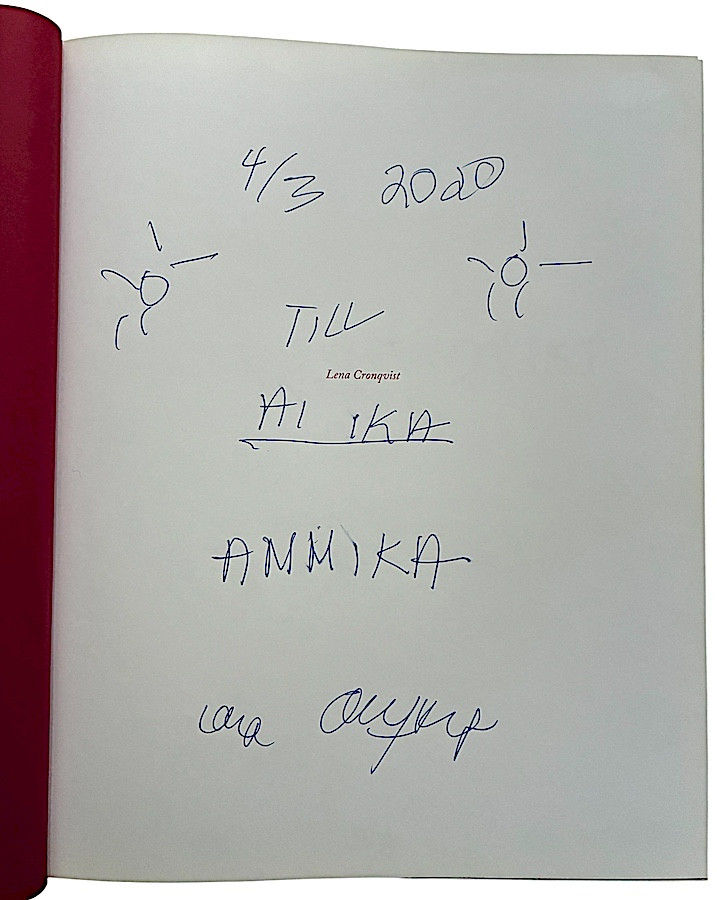 4/3 2020
TILL
Lena Cronqvist
AI IKA
ANNIKA